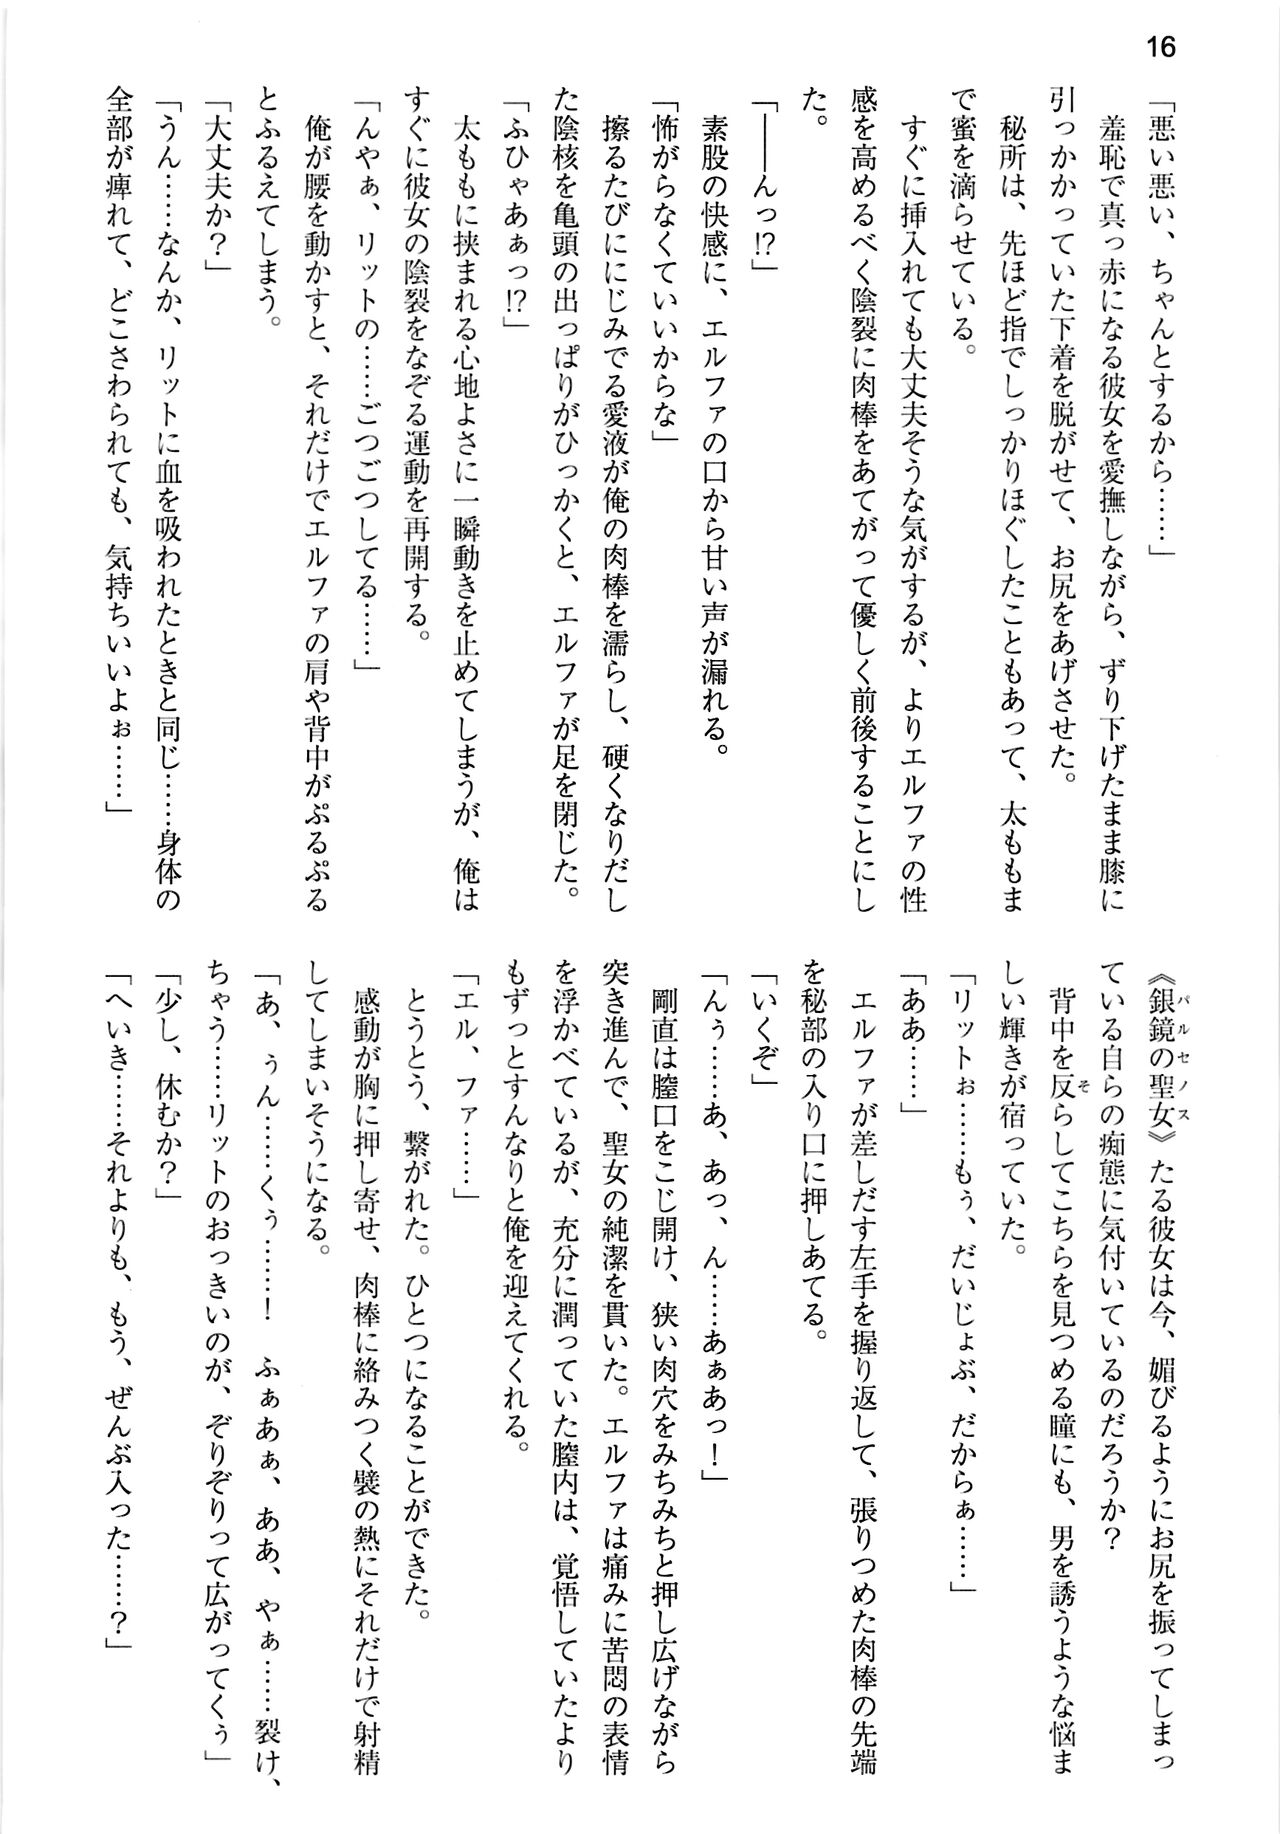 16
「悪い悪い、ちゃんとするから……」
　羞恥で真っ赤になる彼女を愛撫しながら、ずり下げたまま膝に
引っかかっていた下着を脱がせて、お尻をあげさせた。
　秘所は、先ほど指でしっかりほぐしたこともあって、太ももま
で蜜を滴らせている。
　すぐに挿入れても大丈夫そうな気がするが、よりエルファの性
感を高めるべく陰裂に肉棒をあてがって優しく前後することにし
た。
「――んっ!?」
　素股の快感に、エルファの口から甘い声が漏れる。
「怖がらなくていいからな」
　擦るたびににじみでる愛液が俺の肉棒を濡らし、硬くなりだし
た陰核を亀頭の出っぱりがひっかくと、エルファが足を閉じた。
「ふひゃあぁっ!?」
　太ももに挟まれる心地よさに一瞬動きを止めてしまうが、俺は
すぐに彼女の陰裂をなぞる運動を再開する。
「んやぁ、リットの……ごつごつしてる……」
　俺が腰を動かすと、それだけでエルファの肩や背中がぷるぷる
とふるえてしまう。
「大丈夫か？」
「うん……なんか、リットに血を吸われたときと同じ……身体の
全部が痺れて、どこさわられても、気持ちいいよぉ……」
《銀鏡の聖女》たる彼女は今、媚びるようにお尻を振ってしまっ
パルセノス
ている自らの痴態に気付いているのだろうか？
　背中を反らしてこちらを見つめる瞳にも、男を誘うような悩ま
そ
しい輝きが宿っていた。
「リットぉ……もぅ、だいじょぶ、だからぁ……」
「ああ……」
　エルファが差しだす左手を握り返して、張りつめた肉棒の先端
を秘部の入り口に押しあてる。
「いくぞ」
「んぅ……あ、あっ、ん……あぁあっ！」
　剛直は膣口をこじ開け、狭い肉穴をみちみちと押し広げながら
突き進んで、聖女の純潔を貫いた。エルファは痛みに苦悶の表情
を浮かべているが、充分に潤っていた膣内は、覚悟していたより
もずっとすんなりと俺を迎えてくれる。
「エル、ファ……」
　とうとう、繋がれた。ひとつになることができた。
　感動が胸に押し寄せ、肉棒に絡みつく襞の熱にそれだけで射精
してしまいそうになる。
「あ、ぅん……くぅ……！　ふぁあぁ、ああ、やぁ……裂け、
ちゃう……リットのおっきいのが、ぞりぞりって広がってくぅ」
「少し、休むか？」
「へいき……それよりも、もう、ぜんぶ入った……？」